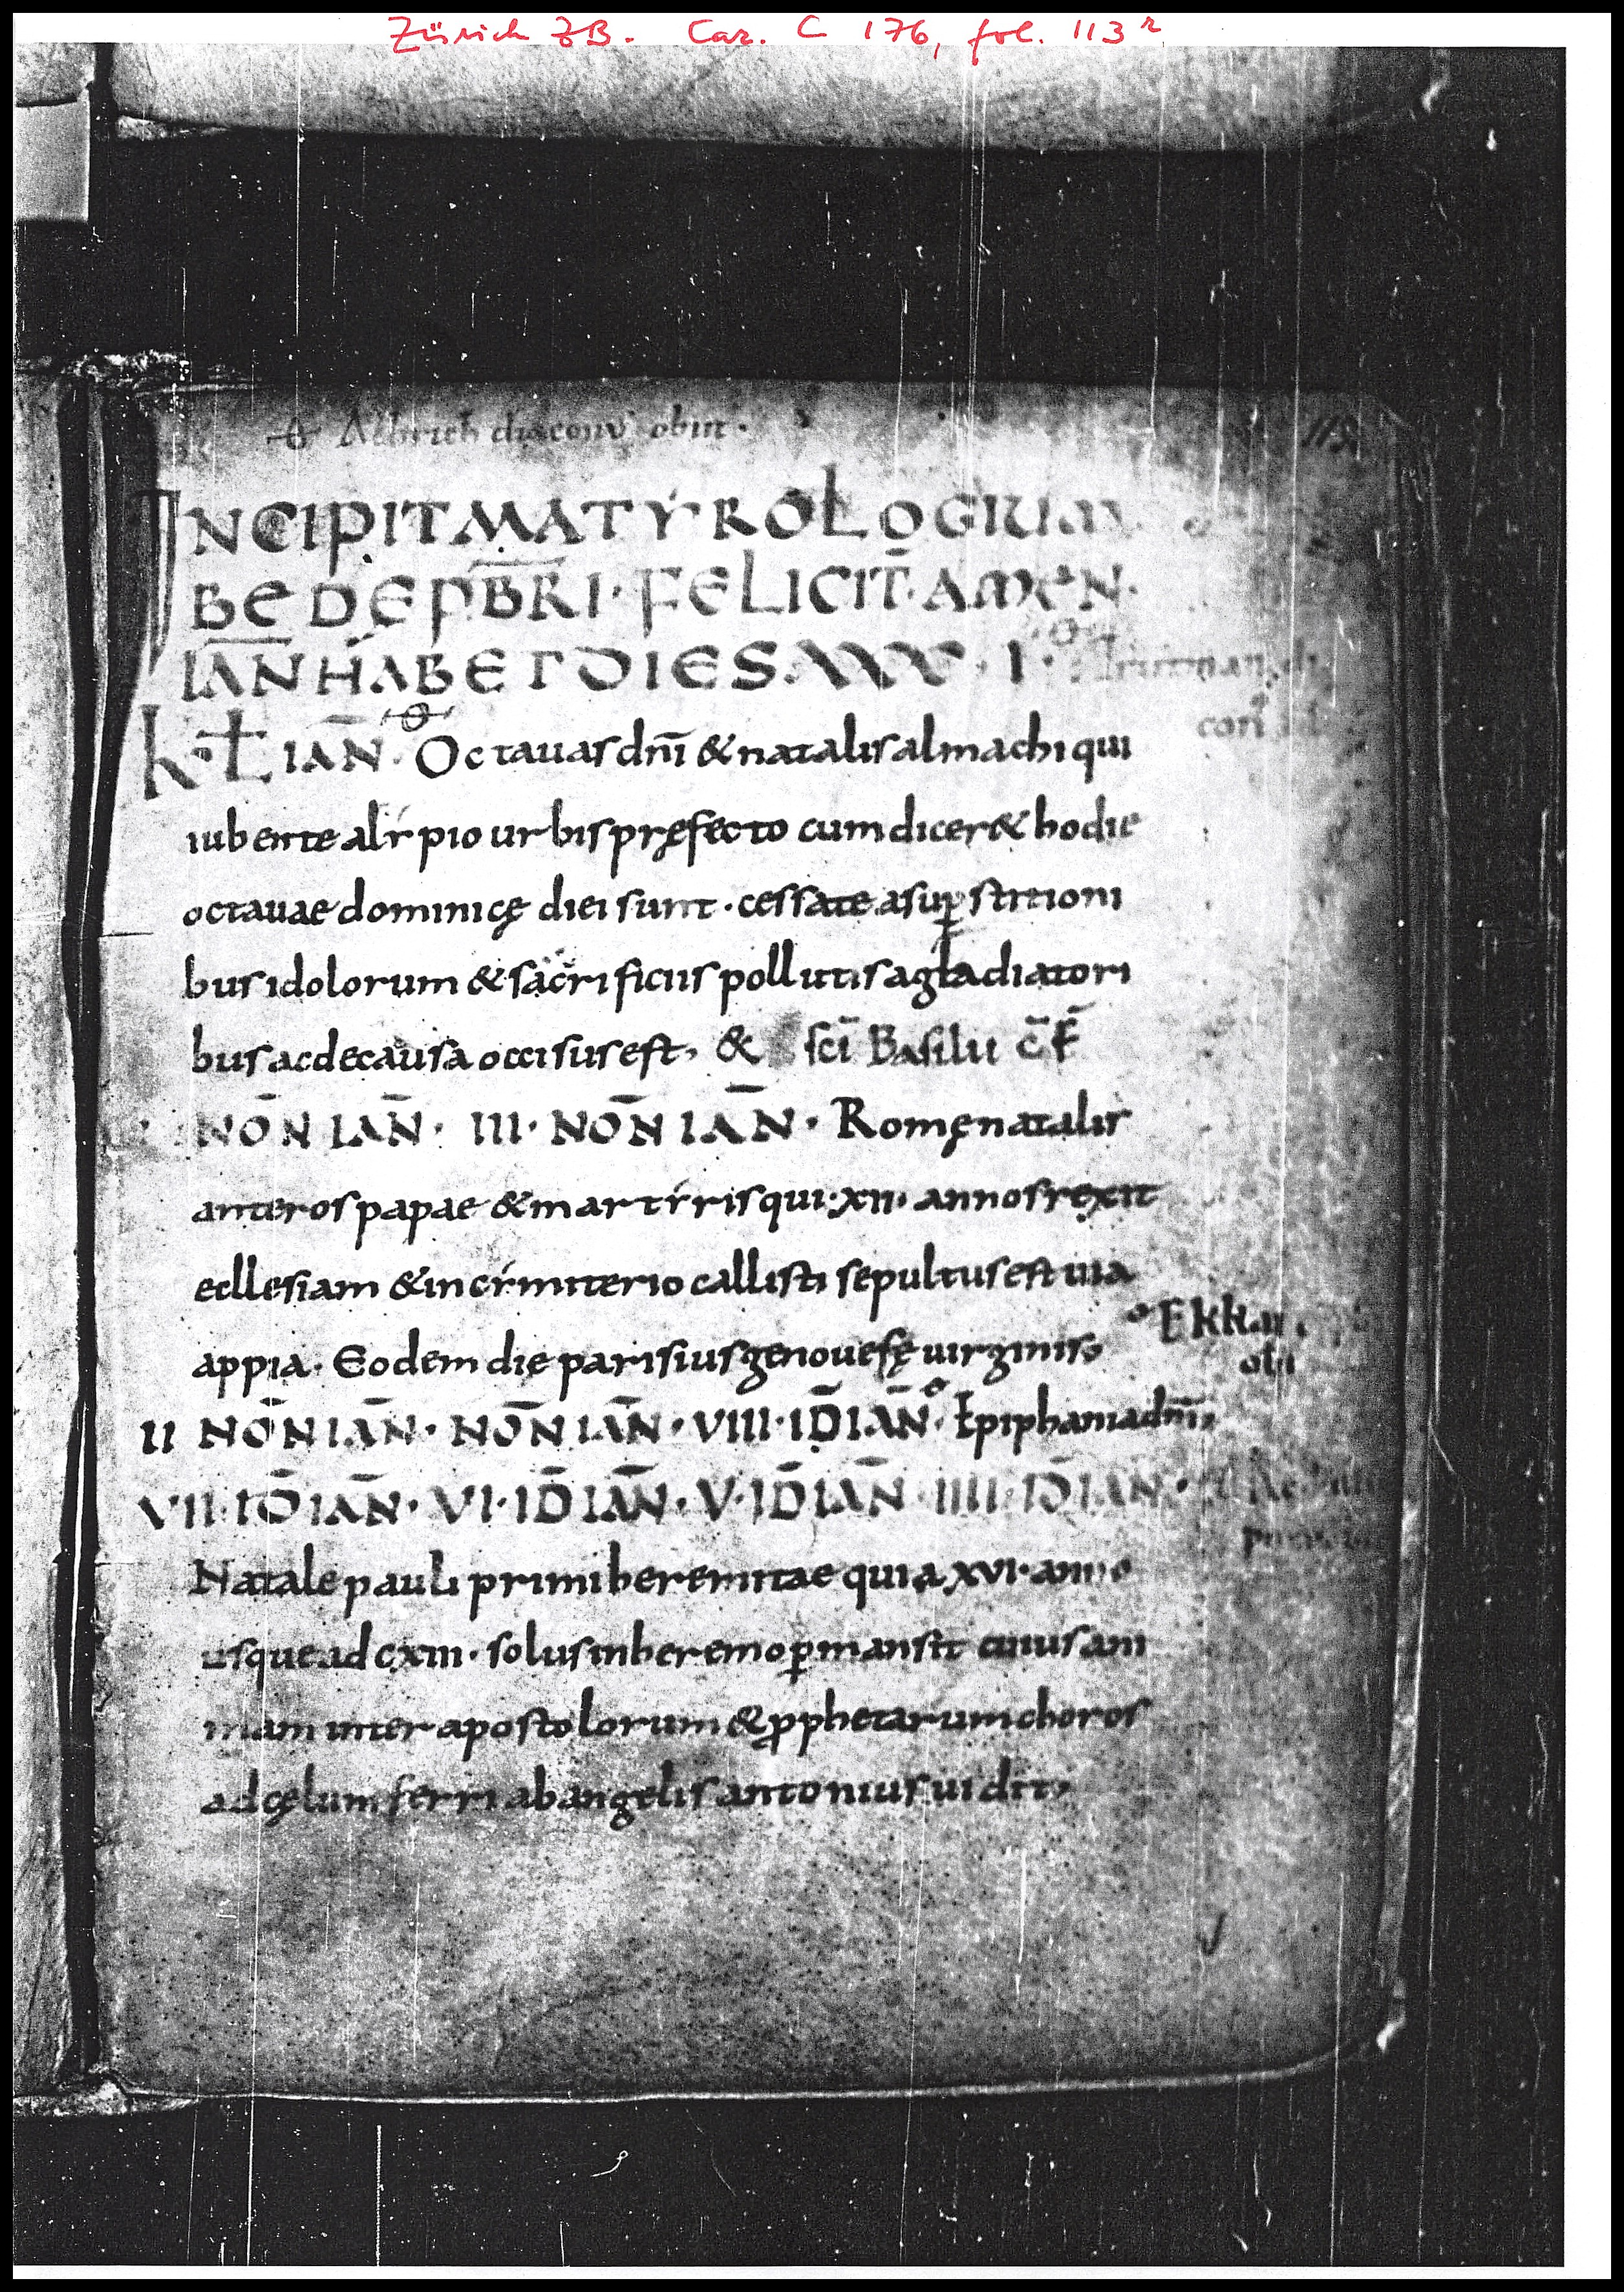 Zürich ZB. Car. C 176, fol. 113r
Albrich diaconus obiit ·
113
INCIPIT MATYROLOGIUM
BEDE P̄B̄RI · FELICIT̄ · AMEN ·
IĀN HABET DIES XXX · I ·
con
K̄L IAN̄ · Octauas dn̄i & natalis almachi qui
iubente alẏpio urbis pręfecto cum dicer& hodie
octauae dominicę diei sunt · cessate a suꝑstitioni
bus idolorum & sacrificiis pollutis a gladiatori
bus ac de causa occisus est, & sc̄i Basilii c̄f̄
NŌN IAN̄ · III · NŌN IAN̄ · Romę natalis
anteros papae & martẏris qui · xii · annos rexit
ecllesiam & in cẏmiterio callisti sepultus est uia
appia · Eodem die parisius genouefę uirginis,
Ekkar
obi
II NŌN IAN̄ · NŌN IAN̄ · VIII · ID̄ IAN̄ · Epiphania dn̄i,
VII · ID̄ IAN̄ · VI · ID̄ IAN̄ · V · ID̄ IAN̄ · IIII · ID̄ IAN ·
Natale pauli primi heremitae qui a xvi · anno
usque ad cxiii · solus in heremo ꝑmansit cuius ani
mam inter apostolorum & ꝓphetarum choros
ad cęlum ferri ab angelis antonius uidit,